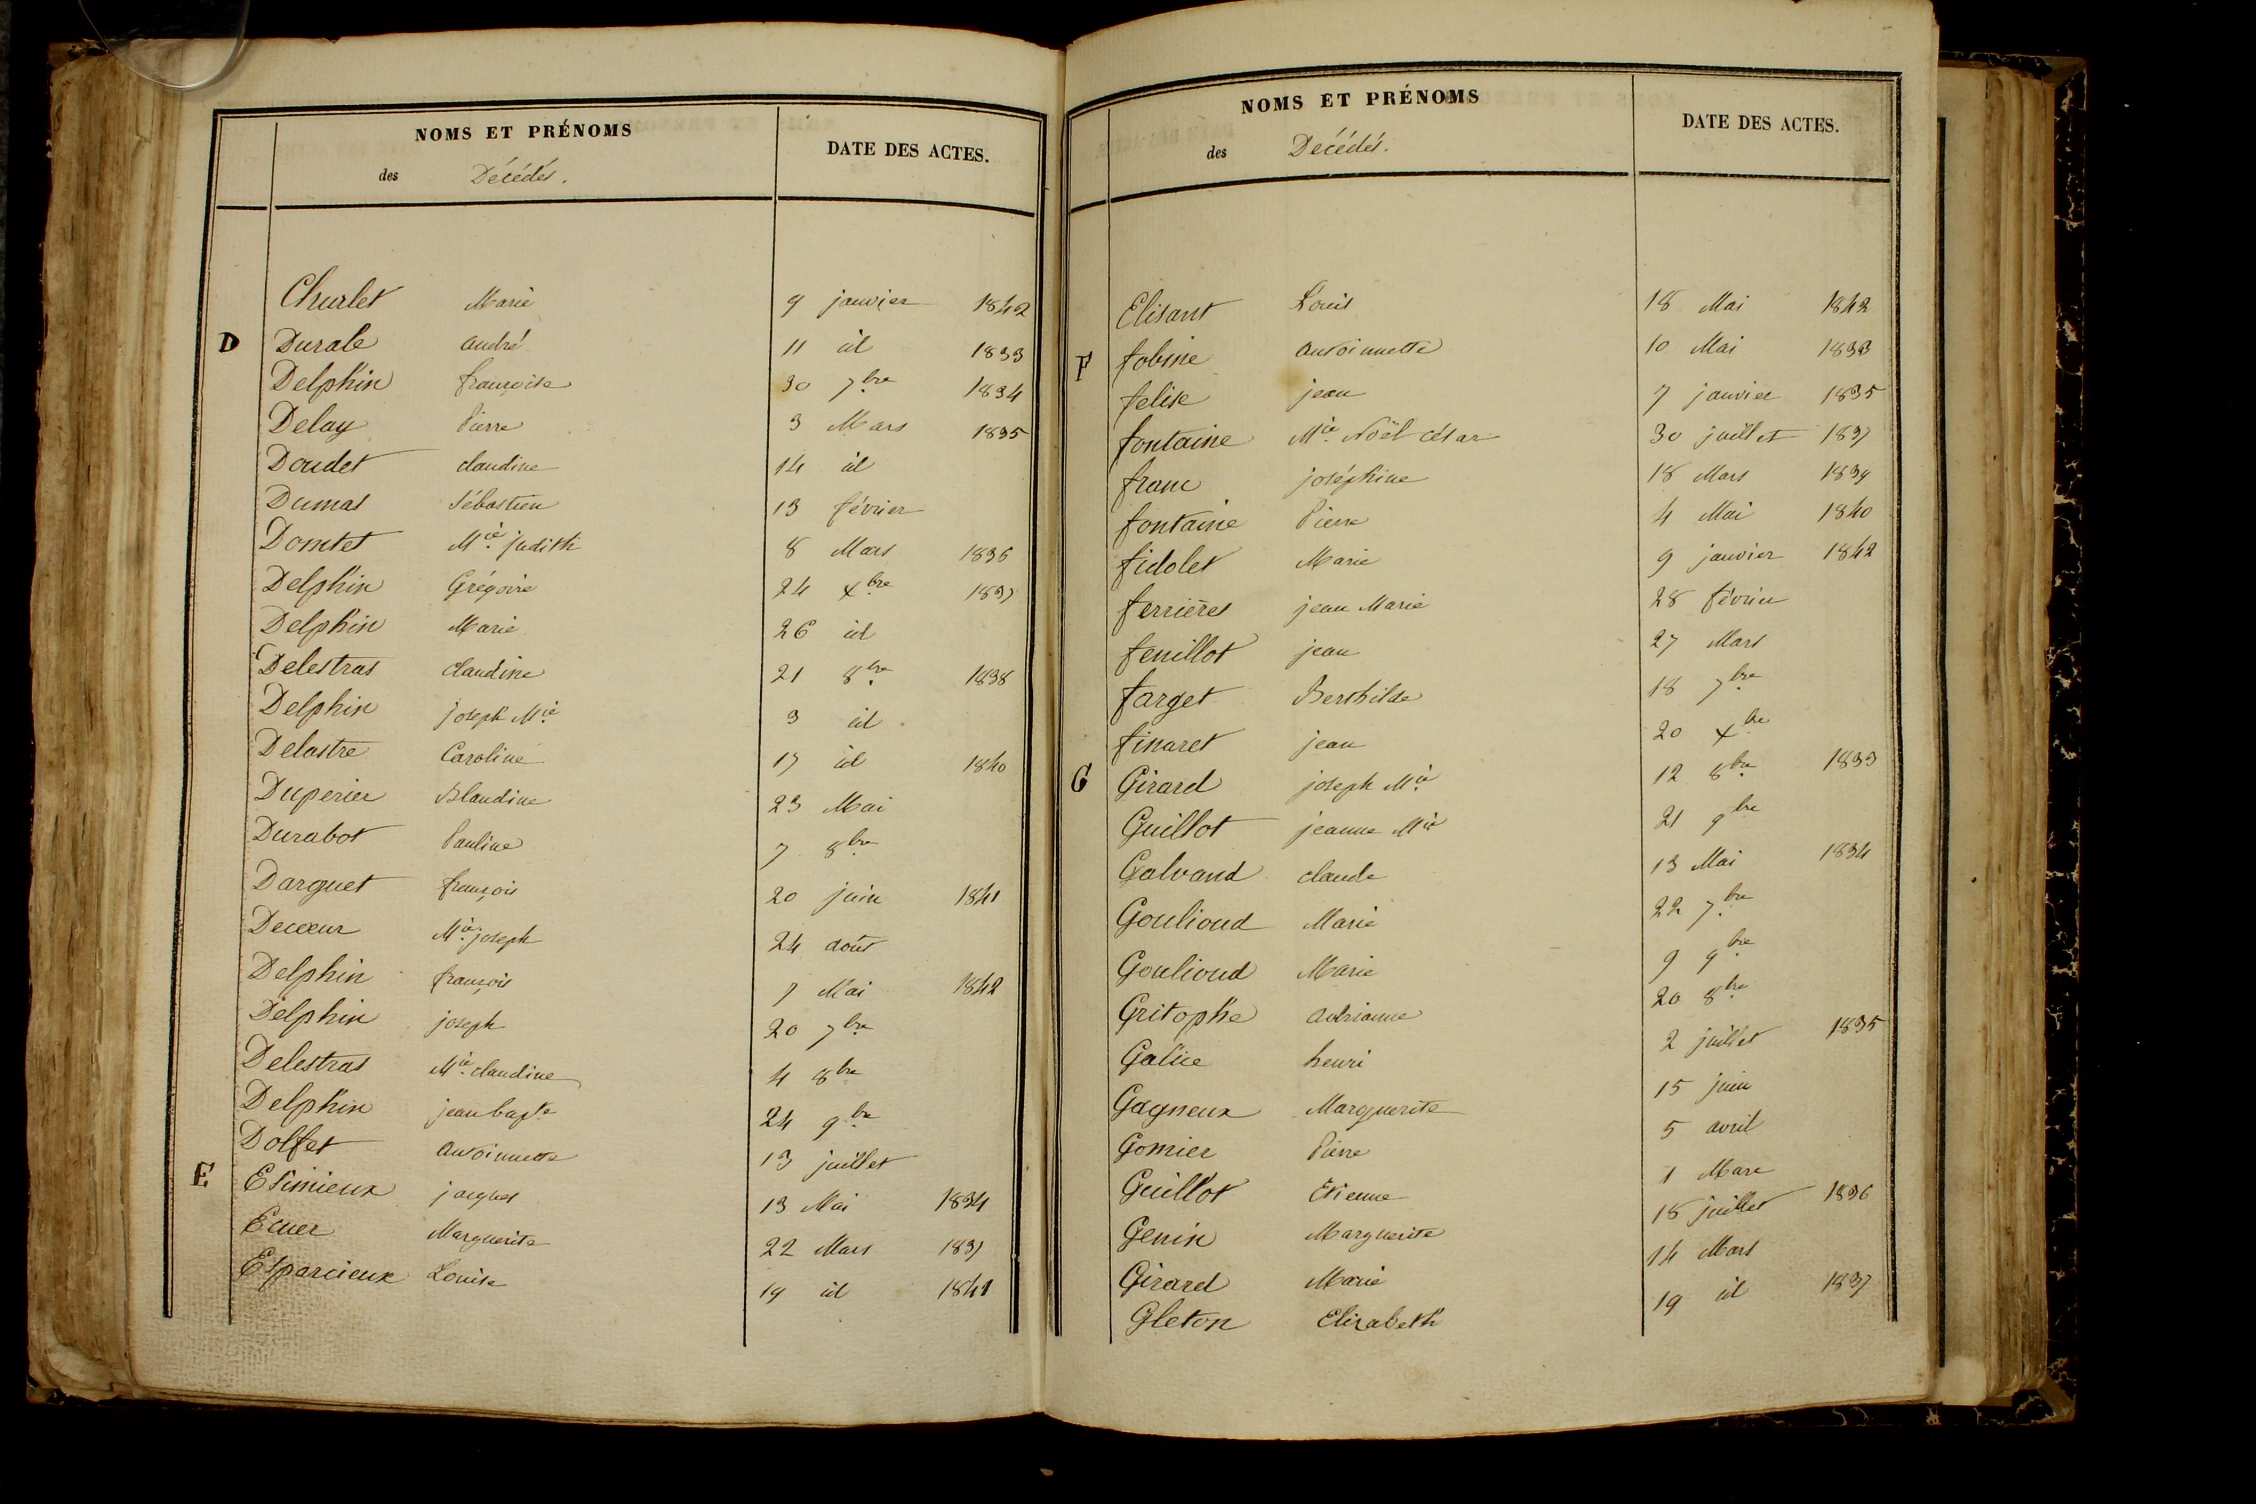 NOMS ET PRÉNOMS
DATE DES ACTES.
des Décédés.
Churlet Marie 9 janvier 1842
D Durale andré 11 id 1833
Delphin françoise 30 7bre 1834
Delay Pierre 3 Mars 1835
Doudet claudine 14 id
Dumas Sébastien 13 février
Domtet Mie judith 8 Mars 1836
Delphin Grégoire 24 xbre 1837
Delphin Marie 26 id
Delestras claudine 21 8bre 1838
Delphin joseph Mie 3 id
Delastre Caroline 17 id 1840
Duperier Blandine 23 Mai
Durabot Pauline 7 8bre
Darguet françois 20 juin 1841
Decœur Mie joseph 24 août
Delphin françois 7 Mai 1842
Delphin joseph 20 7bre
Delestras Mie claudine 4 8bre
Delphin jean bapte 24 9bre
Dolfet antoinette 13 juillet
E Etimieux jacques 13 Mai 1834
Ecuer Marguerite 22 Mars 1837
Esparcieux Louise 19 id 1841
NOMS ET PRÉNOMS
DATE DES ACTES.
des Décédés.
Elisant Louis 18 Mai 1842
F fobine antoinette 10 Mai 1833
felise jean 7 janvier 1835
fontaine Mie Noël César 30 juillet 1837
franc joséphine 18 Mars 1839
fontaine Pierre 4 Mai 1840
fidolet Marie 9 janvier 1842
ferrières jean Marie 28 février
feuillot jean 27 Mars
farget Berthilde 18 7bre
finaret jean 20 xbre
G Girard joseph Mie 12 8bre 1833
Guillot jeanne Mie 21 9bre
Galvand claude 13 Mai 1834
Goulioud Marie 22 7bre
Goulioud Marie 9 9bre
Gritophe adrianne 20 8bre
Galice henri 2 juillet 1835
Gagneux Marguerite 15 juin
Gomier Pierre 5 avril
Guillot Etienne 1 Mars
Genin Marguerite 18 juillet 1836
Girard Marie 14 Mars
Gleton Elizabeth 19 id 1837